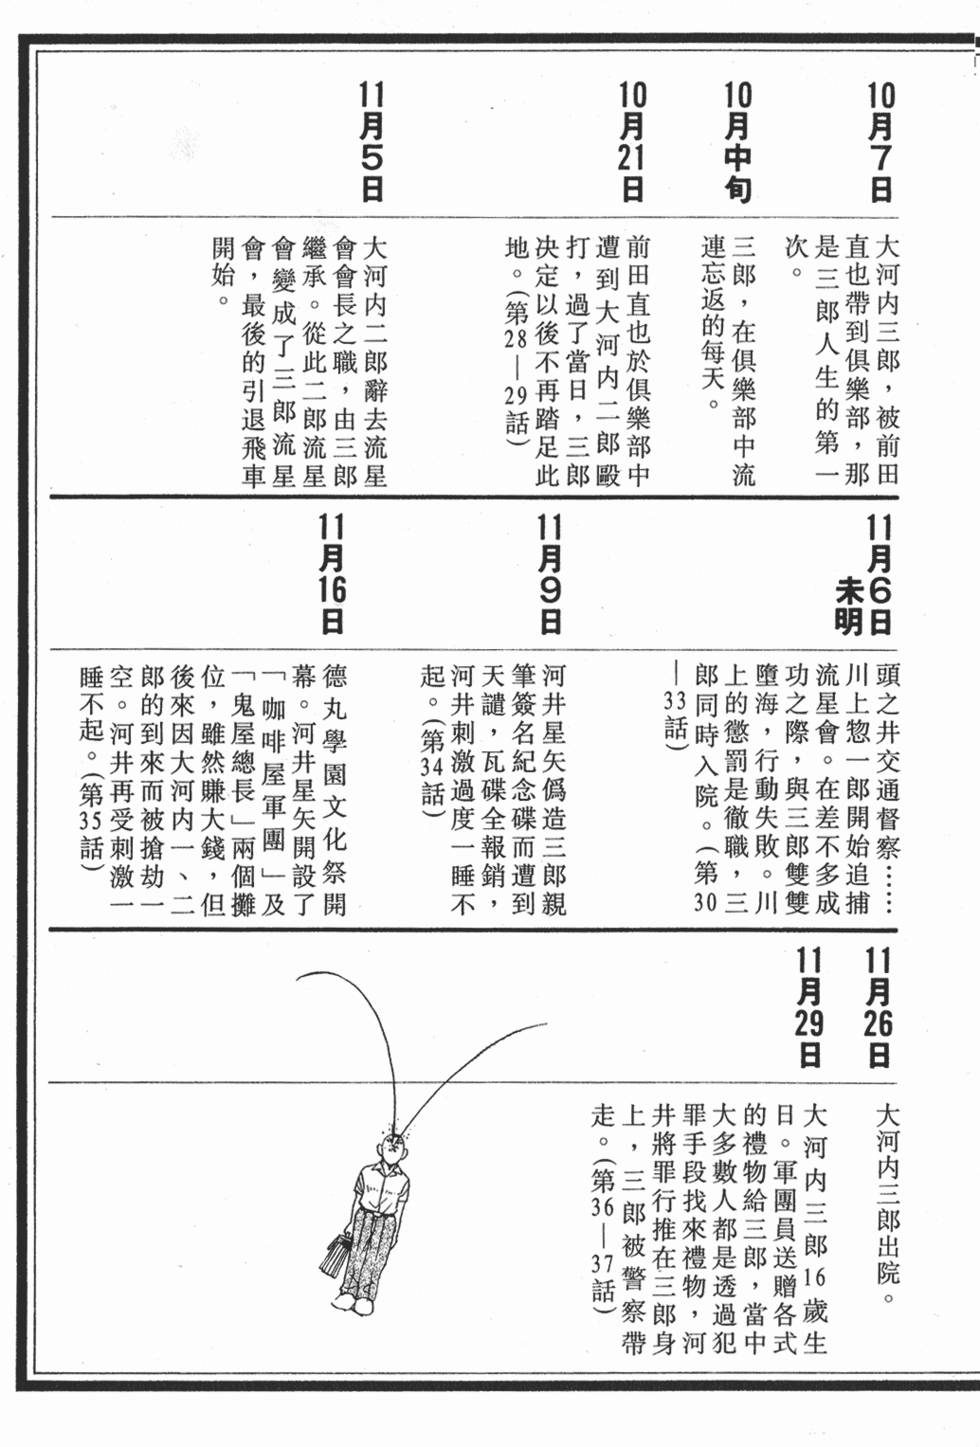 10月7日
大河内三郎，被前田
直也帶到俱樂部，那
是三郎人生的第一
次。
10月中旬
三郎，在俱樂部中流
連忘返的每天。
10月21日
前田直也於俱樂部中
遭到大河内二郎毆
打，過了當日，三郎
決定以後不再踏足此
地。(第28—29話)
11月5日
大河内二郎辭去流星
會會長之職，由三郎
繼承。從此二郎流星
會變成了三郎流星
會，最後的引退飛車
開始。
11月6日
未明
頭之井交通督察……
川上惣一郎開始追捕
流星會。在差不多成
功之際，與三郎雙雙
墮海，行動失敗。川
上的懲罰是徹職，三
郎同時入院。(第30
—33話)
11月9日
河井星矢僞造三郎親
筆簽名紀念碟而遭到
天譴，瓦碟全報銷，
河井刺激過度一睡不
起。(第34話)
11月16日
德丸學園文化祭開
幕。河井星矢開設了
「咖啡屋軍團」及
「鬼屋總長」兩個攤
位，雖然賺大錢，但
後來因大河内一、二
郎的到來而被搶劫一
空。河井再受刺激一
睡不起。(第35話)
11月26日
大河内三郎出院。
11月29日
大河内三郎16歲生
日。軍團員送贈各式
的禮物給三郎，當中
大多數人都是透過犯
罪手段找來禮物，河
井將罪行推在三郎身
上，三郎被警察帶
走。(第36—37話)